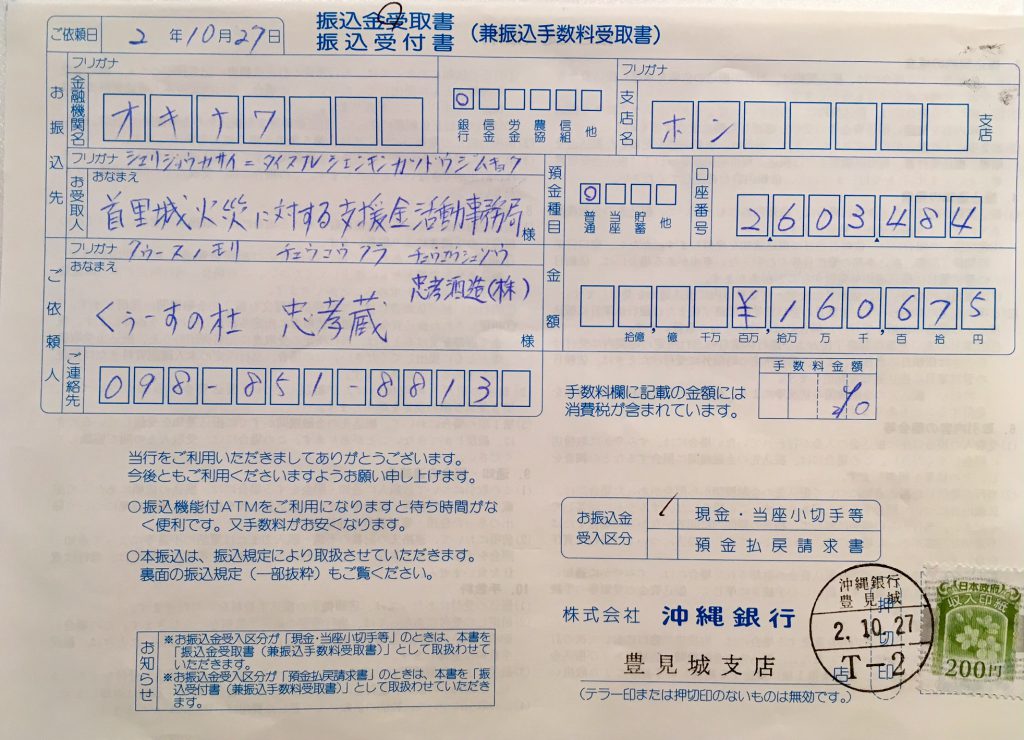 振込金受取書
振込受付書 (兼振込手数料受取書)
ご依頼日 2年10月27日
お振込先
フリガナ
金融機関名 オキナワ
銀行 信金 労金 農協 信組 他
フリガナ
支店名 ホン 支店
フリガナ シュリジョウカサイニタイスルシエンキンカツドウジムキョク
お受取人 おなまえ
首里城火災に対する支援金活動事務局 様
預金種目 普通 当座 貯蓄 他
口座番号 2603484
ご依頼人
フリガナ クゥースノモリ チュウコウクラ チュウコウシュゾウ
おなまえ
忠孝酒造(株)
くぅーすの杜 忠孝蔵 様
金額 ¥160675
拾億 億 千万 百万 拾万 万 千 百 拾 円
ご連絡先 098-851-8813
手数料金額
手数料欄に記載の金額には
消費税が含まれています。
当行をご利用いただきましてありがとうございます。
今後ともご利用くださいますようお願い申し上げます。
○振込機能付ATMをご利用になりますと待ち時間がな
く便利です。又手数料がお安くなります。
○本振込は、振込規定により取扱させていただきます。
裏面の振込規定(一部抜粋)もご覧ください。
お振込金受入区分
現金・当座小切手等
預金払戻請求書
お知らせ
※お振込金受入区分が「現金・当座小切手等」のときは、本書を
「振込金受取書(兼振込手数料受取書)」として取扱わせて
いただきます。
※お振込金受入区分が「預金払戻請求書」のときは、本書を「振
込受付書(兼振込手数料受取書)」として取扱わせていただきま
す。
株式会社 沖縄銀行
豊見城支店
(テラー印または押切印のないものは無効です。)
沖縄銀行
豊見城
2.10.27
T-2
店
押切印
日本政府
収入印紙
200円